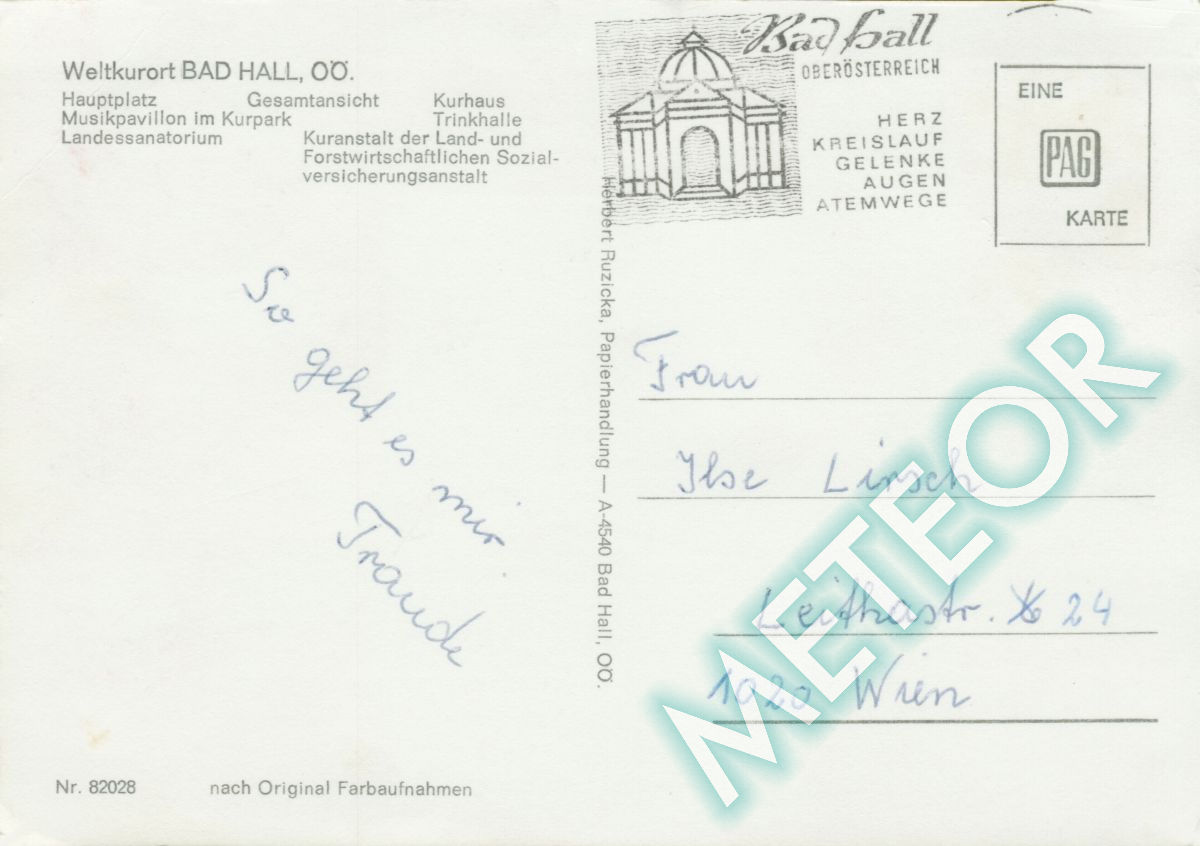 Weltkurort BAD HALL, OÖ.
Hauptplatz Gesamtansicht Kurhaus
Musikpavillon im Kurpark Trinkhalle
Landessanatorium Kuranstalt der Land- und
Forstwirtschaftlichen Sozial-
versicherungsanstalt
So
geht es mir
Traude
Nr. 82028 nach Original Farbaufnahmen
Herbert Ruzicka, Papierhandlung — A-4540 Bad Hall, OÖ.
Bad Hall
OBERÖSTERREICH
HERZ
KREISLAUF
GELENKE
AUGEN
ATEMWEGE
EINE
PAG
KARTE
Frau
Ilse Lirsch
Leithastr. 24
1020 Wien
METEOR